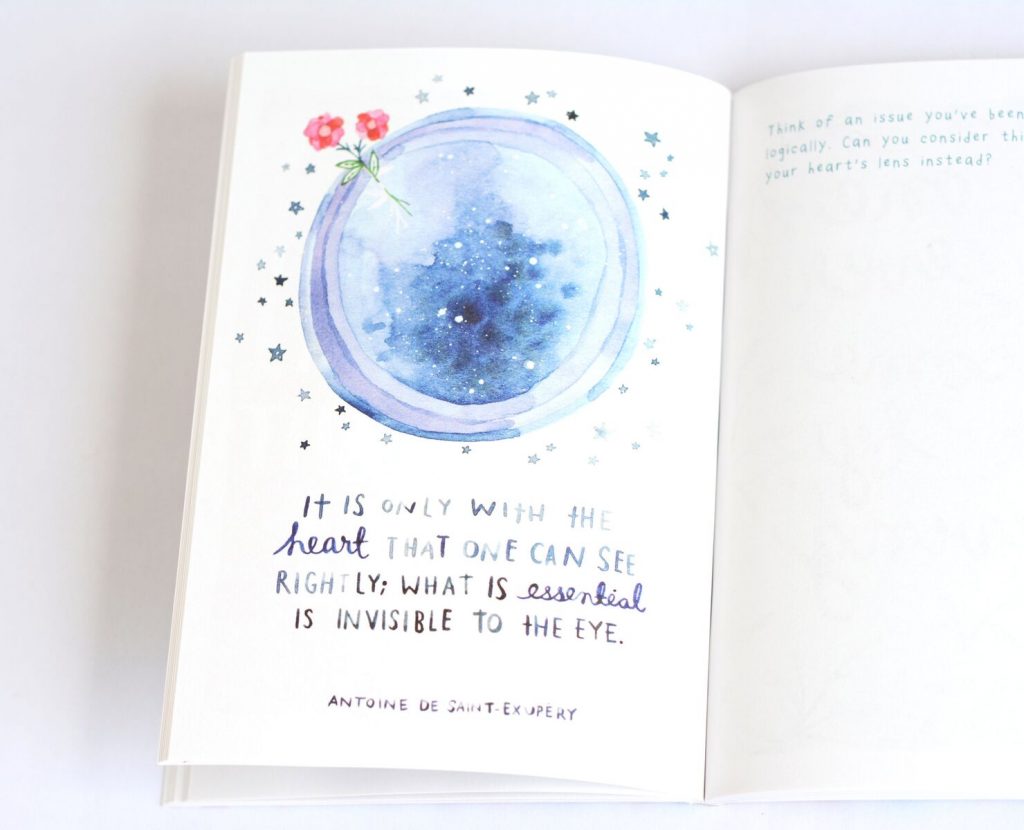 IT IS ONLY WITH THE
heart THAT ONE CAN SEE
RIGHTLY; WHAT IS essential
IS INVISIBLE TO THE EYE.
ANTOINE DE SAINT-EXUPERY
Think of an issue you've been
logically. Can you consider
your heart's lens instead?